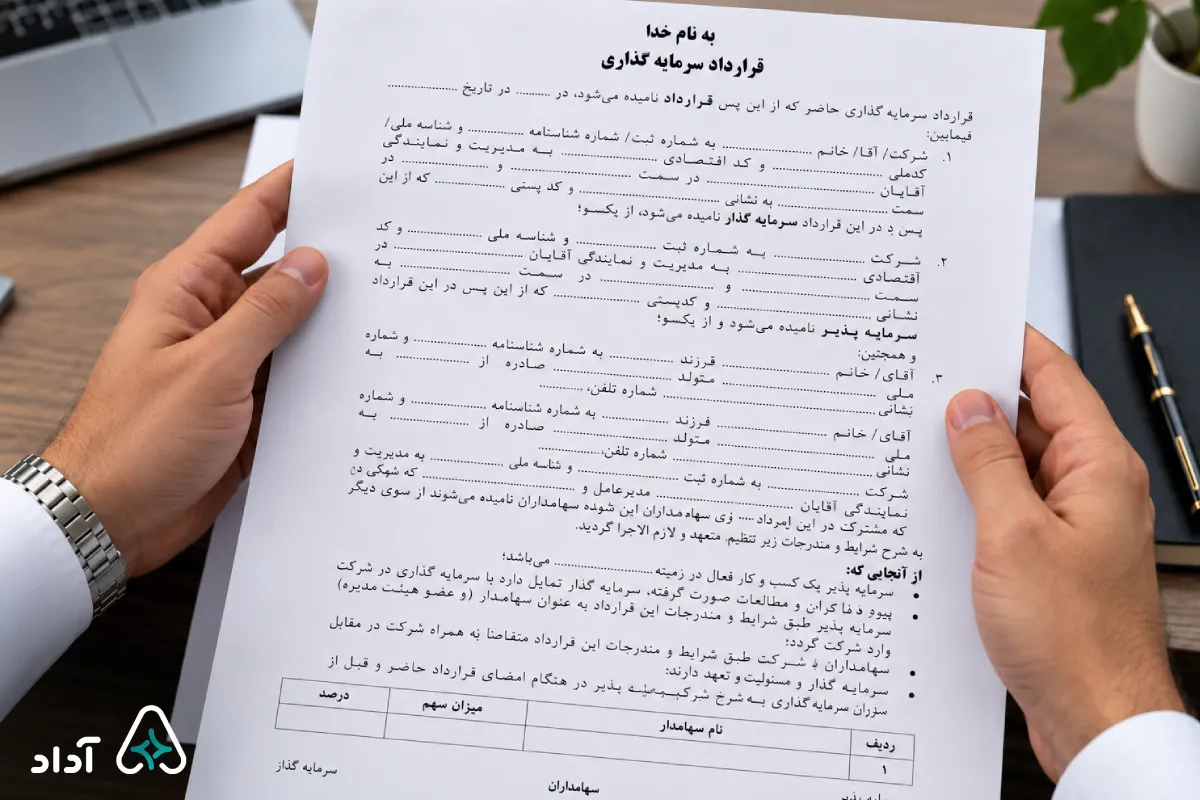 به نام خدا
قرارداد سرمایه گذاری
قرارداد سرمایه گذاری حاضر که از این پس قرارداد نامیده می‌شود، در .......... در تاریخ ....................
فیمابین:
۱. شرکت/ آقا/ خانم .................... به شماره ثبت/ شماره شناسنامه ............... و شناسه ملی/
کدملی .................... و کد اقتصادی .................... به مدیریت و نمایندگی
آقایان .................... در سمت .................... و .................... در
سمت .................... به نشانی .................... و کد پستی .................... که از این
پس در این قرارداد سرمایه گذار نامیده می‌شود، از یکسو؛
۲. شرکت .................... به شماره ثبت .................... و شناسه ملی .................... و کد
اقتصادی .................... به مدیریت و نمایندگی آقایان .................... در
سمت .................... و .................... در سمت .................... به
نشانی .................... و کدپستی .................... که از این پس در این قرارداد
سرمایه پذیر نامیده می‌شود و از یکسو؛
و همچنین:
۳. آقای/ خانم .................... فرزند .................... به شماره شناسنامه .................... و شماره
ملی .................... متولد .................... صادره از .................... به
نشانی .................... شماره تلفن، ..........
آقای/ خانم .................... فرزند .................... به شماره شناسنامه .................... و شماره
ملی .................... متولد .................... صادره از .................... به
نشانی .................... شماره تلفن، ..........
شرکت .................... به شماره ثبت .................... و شناسه ملی .................... به مدیریت و
نمایندگی آقایان .................... مدیرعامل و .................... که
که مشترکت در این ..... سهامداران این شوده سهامداران نامیده می‌شوند از سوی دیگر
به شرح شرایط و مندرجات زیر تنظیم، متعهد و لازم الاجرا گردید.
از آنجایی که:
• سرمایه پذیر یک کسب و کار فعال در زمینه .................... می‌باشد؛
• و مطالعات صورت گرفته، سرمایه گذار تمایل دارد با سرمایه گذاری در شرکت
سرمایه پذیر طبق شرایط و مندرجات این قرارداد به عنوان سهامدار (و عضو هیئت مدیره)
وارد شرکت گردد؛
• سهامداران شرکت طبق شرایط و مندرجات این قرارداد متقاضا به همراه شرکت در مقابل
سرمایه گذار و مسئولیت و تعهد دارند:
• سرمایه گذاری به شرح پذیر در هنگام امضای قرارداد حاضر و قبل از
ردیف نام سهامدار میزان سهم درصد
۱
سرمایه گذار
سهامداران
آداد